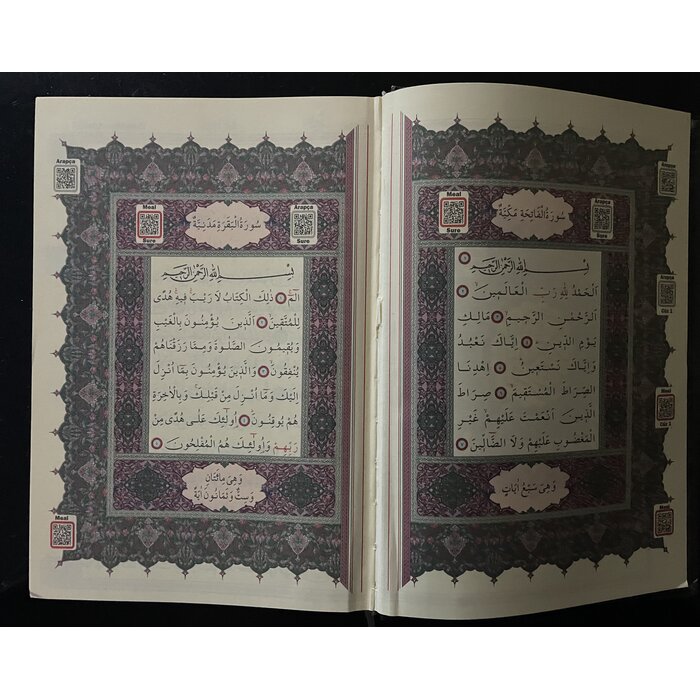 سُورَةُ الْفَاتِحَةِ مَكِّيَّةٌ
Meal
Sure
Arapça
Sure
Arapça
بِسْمِ اللّٰهِ الرَّحْمٰنِ الرَّحِيمِ
اَلْحَمْدُ لِلّٰهِ رَبِّ الْعَالَمِينَ
اَلرَّحْمٰنِ الرَّحِيمِ مَالِكِ
يَوْمِ الدِّينِ اِيَّاكَ نَعْبُدُ
وَاِيَّاكَ نَسْتَعِينُ اِهْدِنَا
الصِّرَاطَ الْمُسْتَقِيمَ صِرَاطَ
الَّذِينَ اَنْعَمْتَ عَلَيْهِمْ غَيْرِ
الْمَغْضُوبِ عَلَيْهِمْ وَلَا الضَّالِّينَ
وَهِيَ سَبْعُ اٰيَاتٍ
Arapça
Cüz 1
Meal
Cüz 1
Meal
Arapça
سُورَةُ الْبَقَرَةِ مَدَنِيَّةٌ
Meal
Sure
Arapça
Sure
بِسْمِ اللّٰهِ الرَّحْمٰنِ الرَّحِيمِ
الٓمٓ ذٰلِكَ الْكِتَابُ لَا رَيْبَ فِيهِ هُدًى
لِلْمُتَّقِينَ اَلَّذِينَ يُؤْمِنُونَ بِالْغَيْبِ
وَيُقِيمُونَ الصَّلٰوةَ وَمِمَّا رَزَقْنَاهُمْ
يُنْفِقُونَ وَالَّذِينَ يُؤْمِنُونَ بِمَٓا اُنْزِلَ
اِلَيْكَ وَمَٓا اُنْزِلَ مِنْ قَبْلِكَ وَبِالْاٰخِرَةِ
هُمْ يُوقِنُونَ اُو۬لٰٓئِكَ عَلٰى هُدًى مِنْ
رَبِّهِمْ وَاُو۬لٰٓئِكَ هُمُ الْمُفْلِحُونَ
وَهِيَ مِائَتَانِ
وَسِتٌّ وَثَمَانُونَ اٰيَةً
Meal